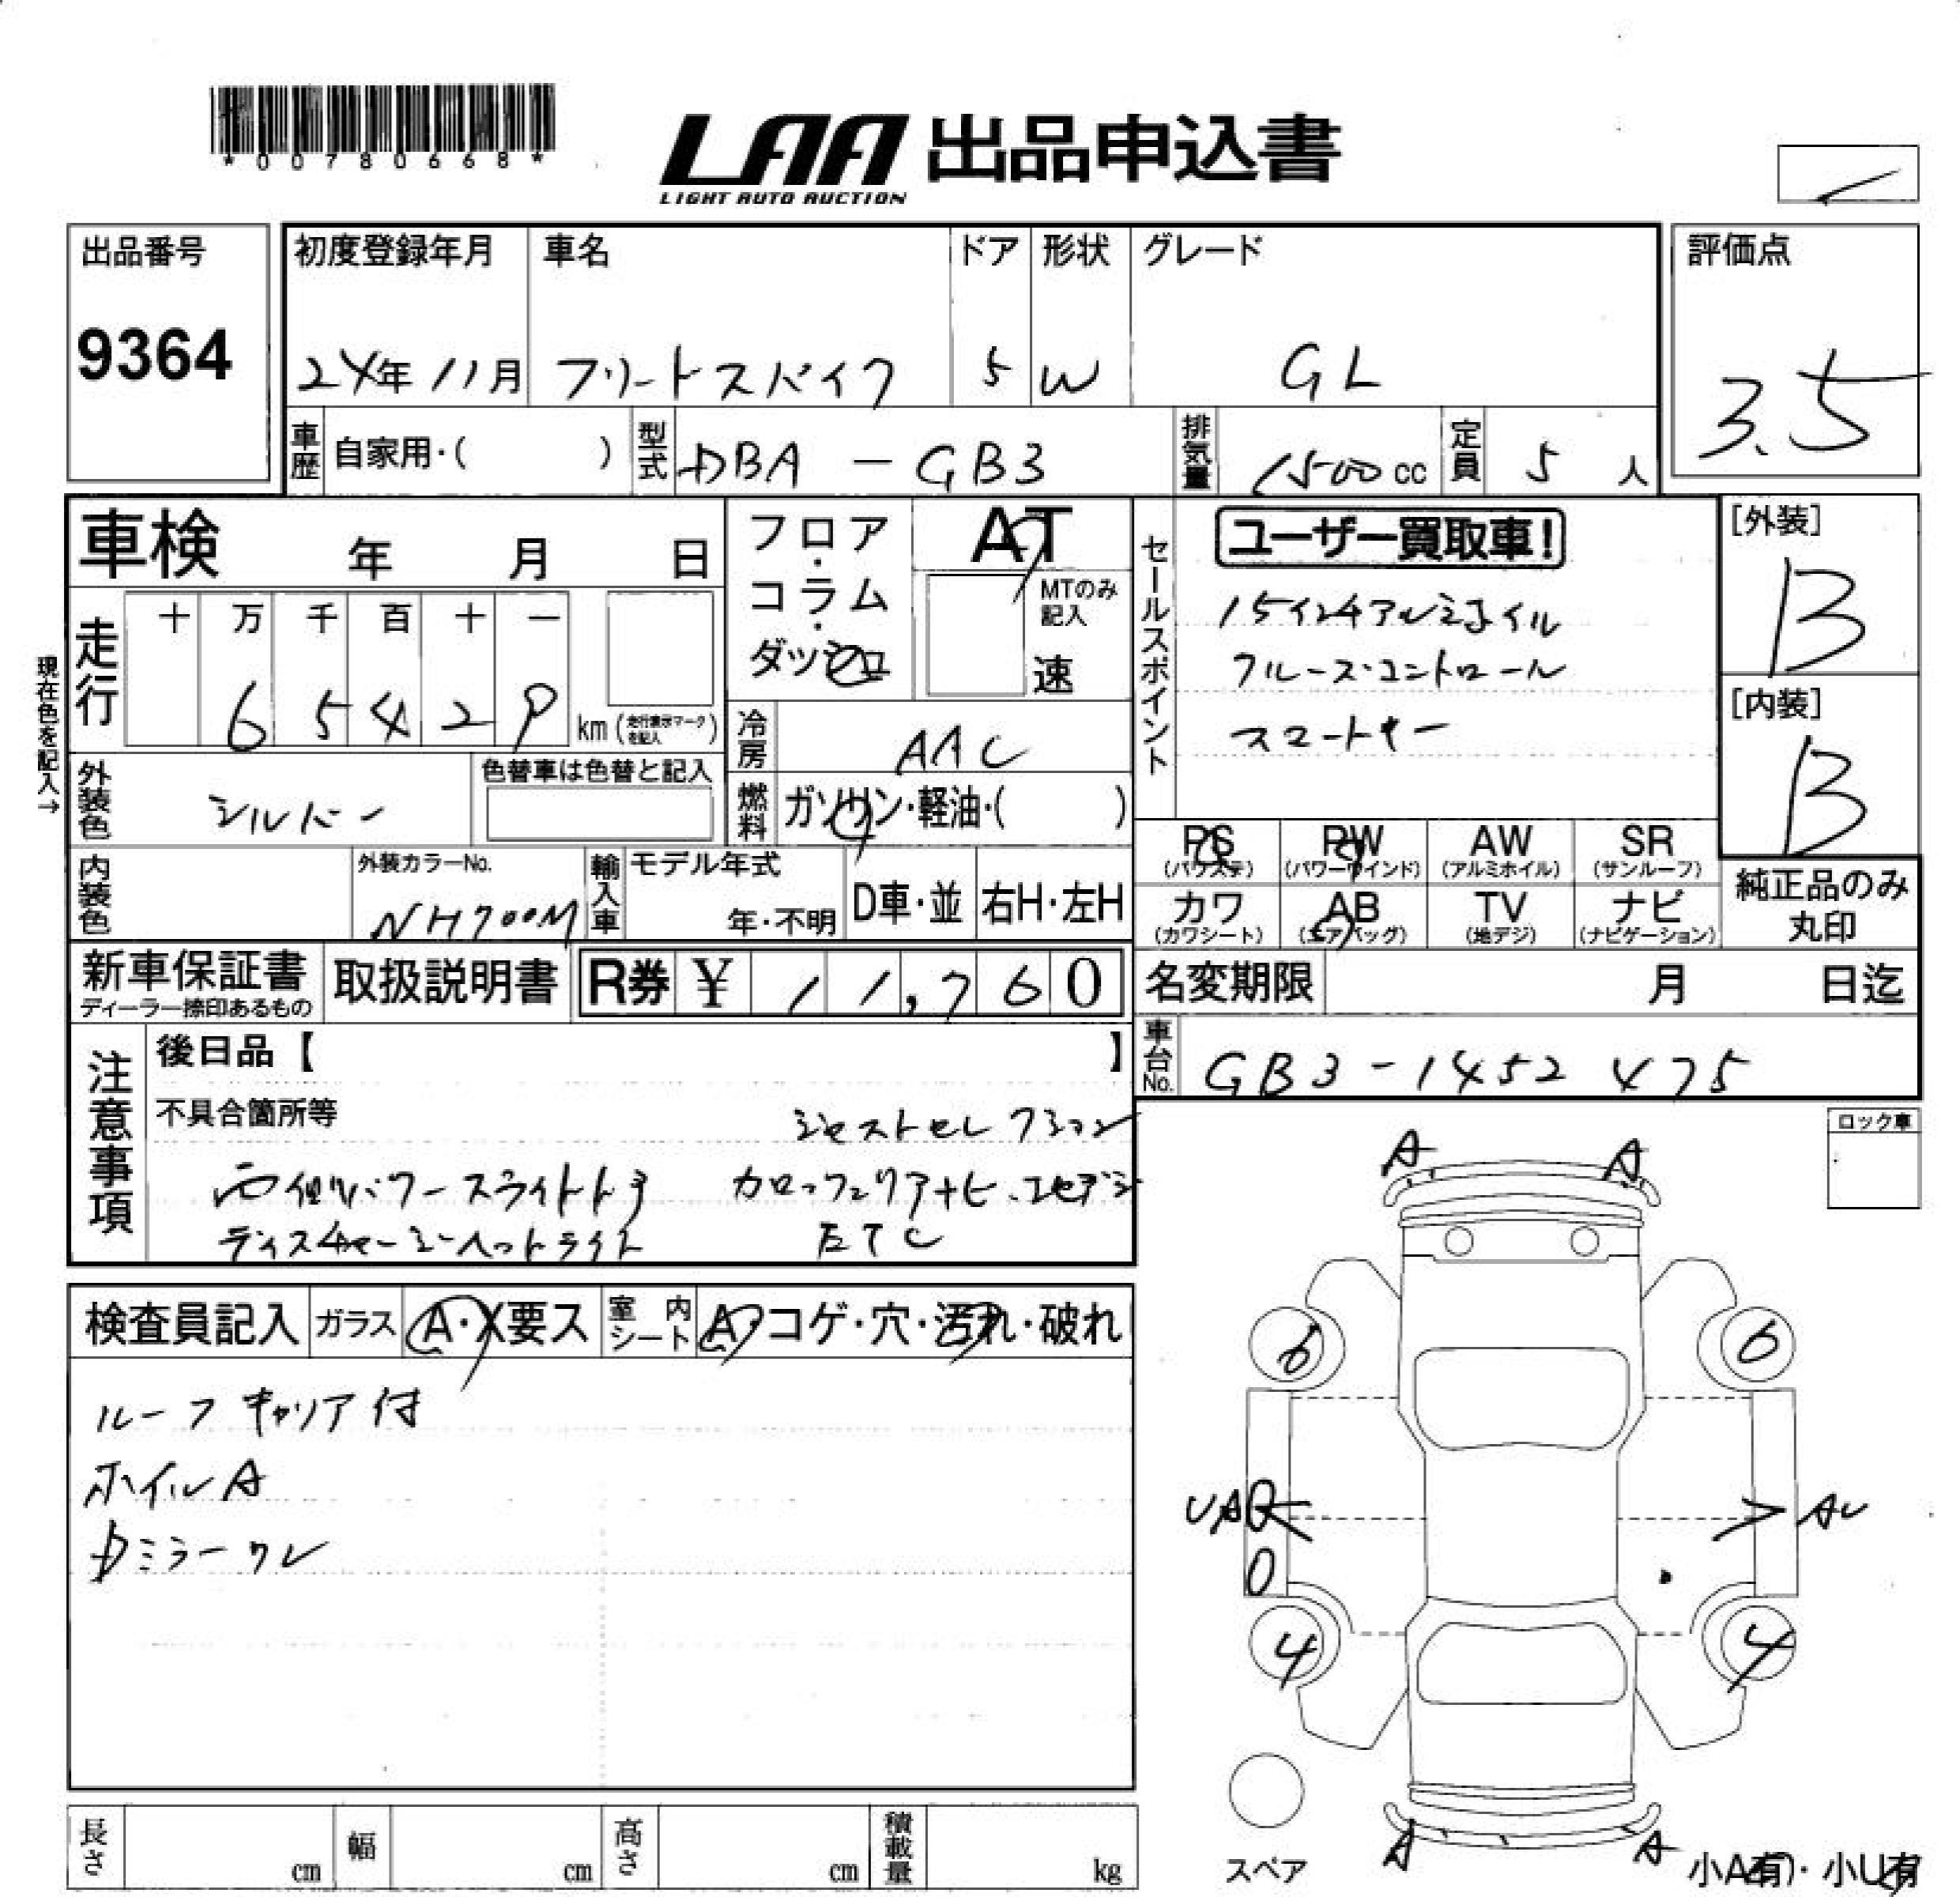 *00780668*
LAA 出品申込書
LIGHT AUTO AUCTION
出品番号
9364
初度登録年月
24年 11月
車名
フリードスパイク
ドア
5
形状
W
グレード
GL
評価点
3.5
車歴 自家用・( )
型式 DBA-GB3
排気量 1500 cc
定員 5 人
車検 年 月 日
フロア・コラム・ダッシュ
AT
MTのみ記入
速
セールスポイント
ユーザー買取車!
15インチアルミホイル
クルーズコントロール
スマートキー
[外装]
B
[内装]
B
現在色を記入→
走行
十 万 千 百 十 一
6 5 4 2 9 km (走行表示マークを記入)
冷房 AAC
外装色 シルバー
色替車は色替と記入
燃料 ガソリン・軽油・( )
PS (パワステ)
PW (パワーウインド)
AW (アルミホイル)
SR (サンルーフ)
カワ (カワシート)
AB (エアバッグ)
TV (地デジ)
ナビ (ナビゲーション)
純正品のみ丸印
内装色
外装カラーNo.
NH700M
輸入車
モデル年式
年・不明
D車・並
右H・左H
新車保証書
ディーラー捺印あるもの
取扱説明書
R券 ¥ 11,760
名変期限 月 日迄
車台No. GB3-1452475
注意事項
後日品【 】
不具合箇所等
ジャストセレクション
両側パワースライドドア カロッツェリアナビ、フルセグ
ディスチャージヘッドライト ETC
ロック車
検査員記入
ガラス A・X要ス
室内シート A・コゲ・穴・汚れ・破れ
ルーフキャリア付
ホイルA
Dミラーワレ
A A
6 6
UA AU
4 4
A A
スペア
小A有・小U有
長さ cm
幅 cm
高さ cm
積載量 kg